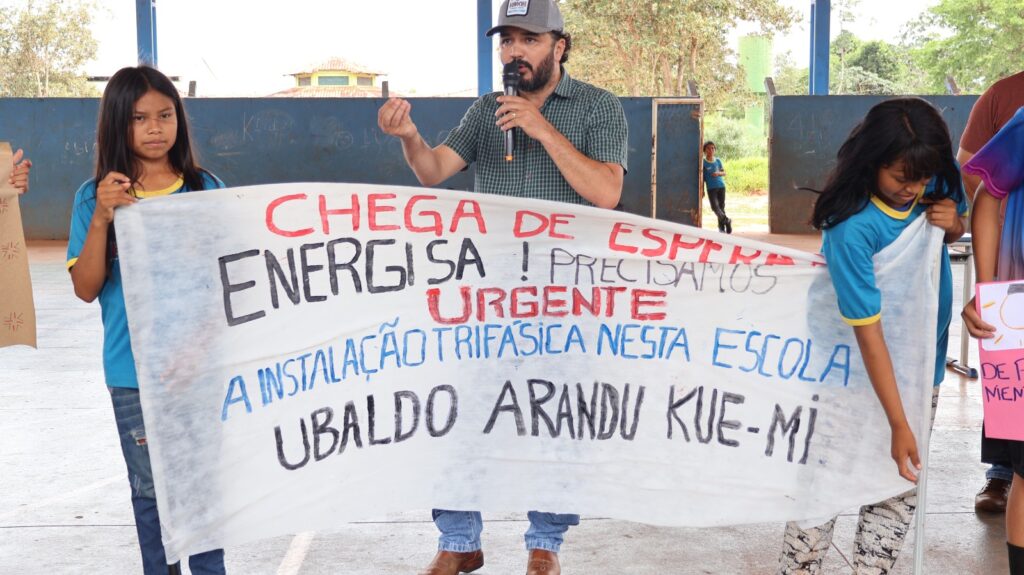 CHEGA DE ESPERA
ENERGISA ! PRECISAMOS
URGENTE
A INSTALAÇÃO TRIFÁSICA NESTA ESCOLA
UBALDO ARANDU KUE-MÍ
DE